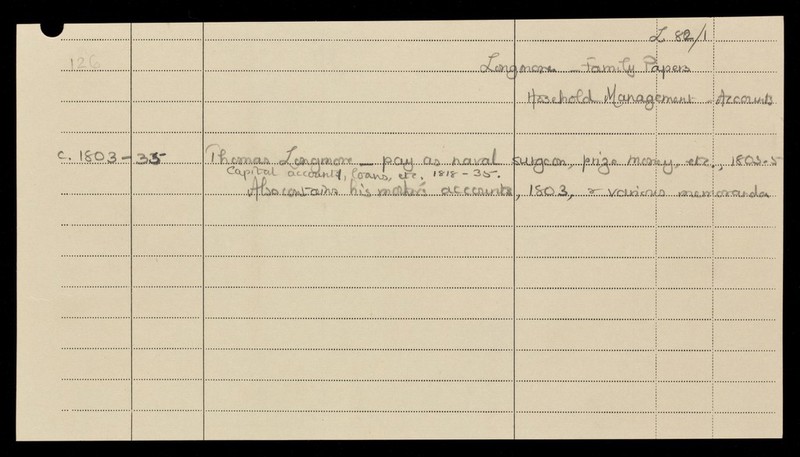 L 82/1
126
Longmore — Family Papers
Household Management - Accounts
c. 1803 - 35 Thomas Longmore — pay as naval surgeon, prize money, etc., 1803-5
Capital accounts, loans, etc. 1818 - 35.
Also contains his mother's accounts, 1803, & various memoranda